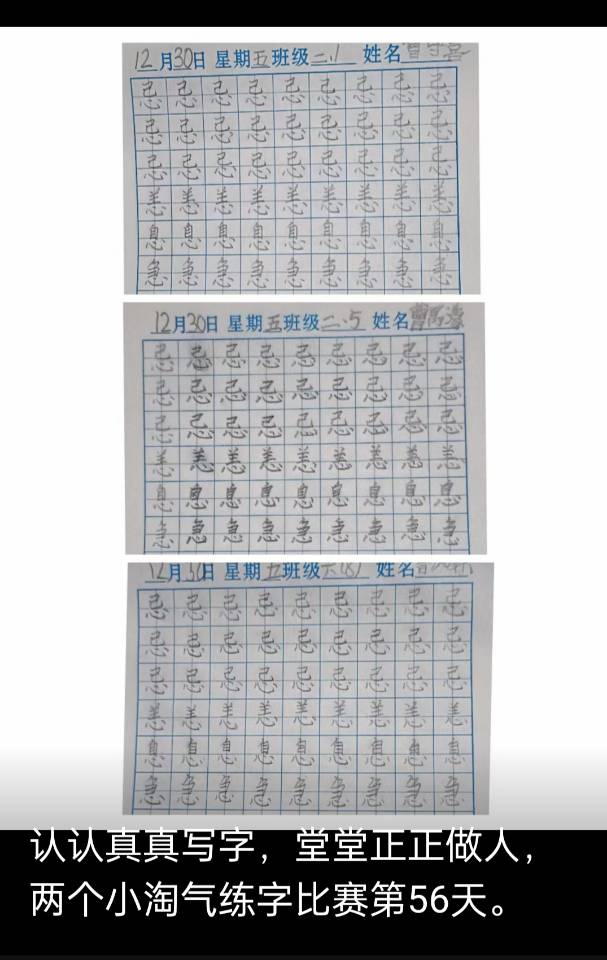 12月30日 星期五班级二.1 姓名
忌 忌 忌 忌 忌 忌 忌 忌 忌
忌 忌 忌 忌 忌 忌 忌 忌 忌
忌 忌 忌 忌 忌 忌 忌 忌 忌
恙 恙 恙 恙 恙 恙 恙 恙 恙
息 息 息 息 息 息 息 息 息
急 急 急 急 急 急 急 急 急
12月30日 星期五班级二.5 姓名
忌 忌 忌 忌 忌 忌 忌 忌 忌
忌 忌 忌 忌 忌 忌 忌 忌 忌
忌 忌 忌 忌 忌 忌 忌 忌 忌
恙 恙 恙 恙 恙 恙 恙 恙 恙
息 息 息 息 息 息 息 息 息
急 急 急 急 急 急 急 急 急
12月30日 星期五班级 姓名
忌 忌 忌 忌 忌 忌 忌 忌 忌
忌 忌 忌 忌 忌 忌 忌 忌 忌
忌 忌 忌 忌 忌 忌 忌 忌 忌
恙 恙 恙 恙 恙 恙 恙 恙 恙
息 息 息 息 息 息 息 息 息
急 急 急 急 急 急 急 急 急
认认真真写字，堂堂正正做人，
两个小淘气练字比赛第56天。